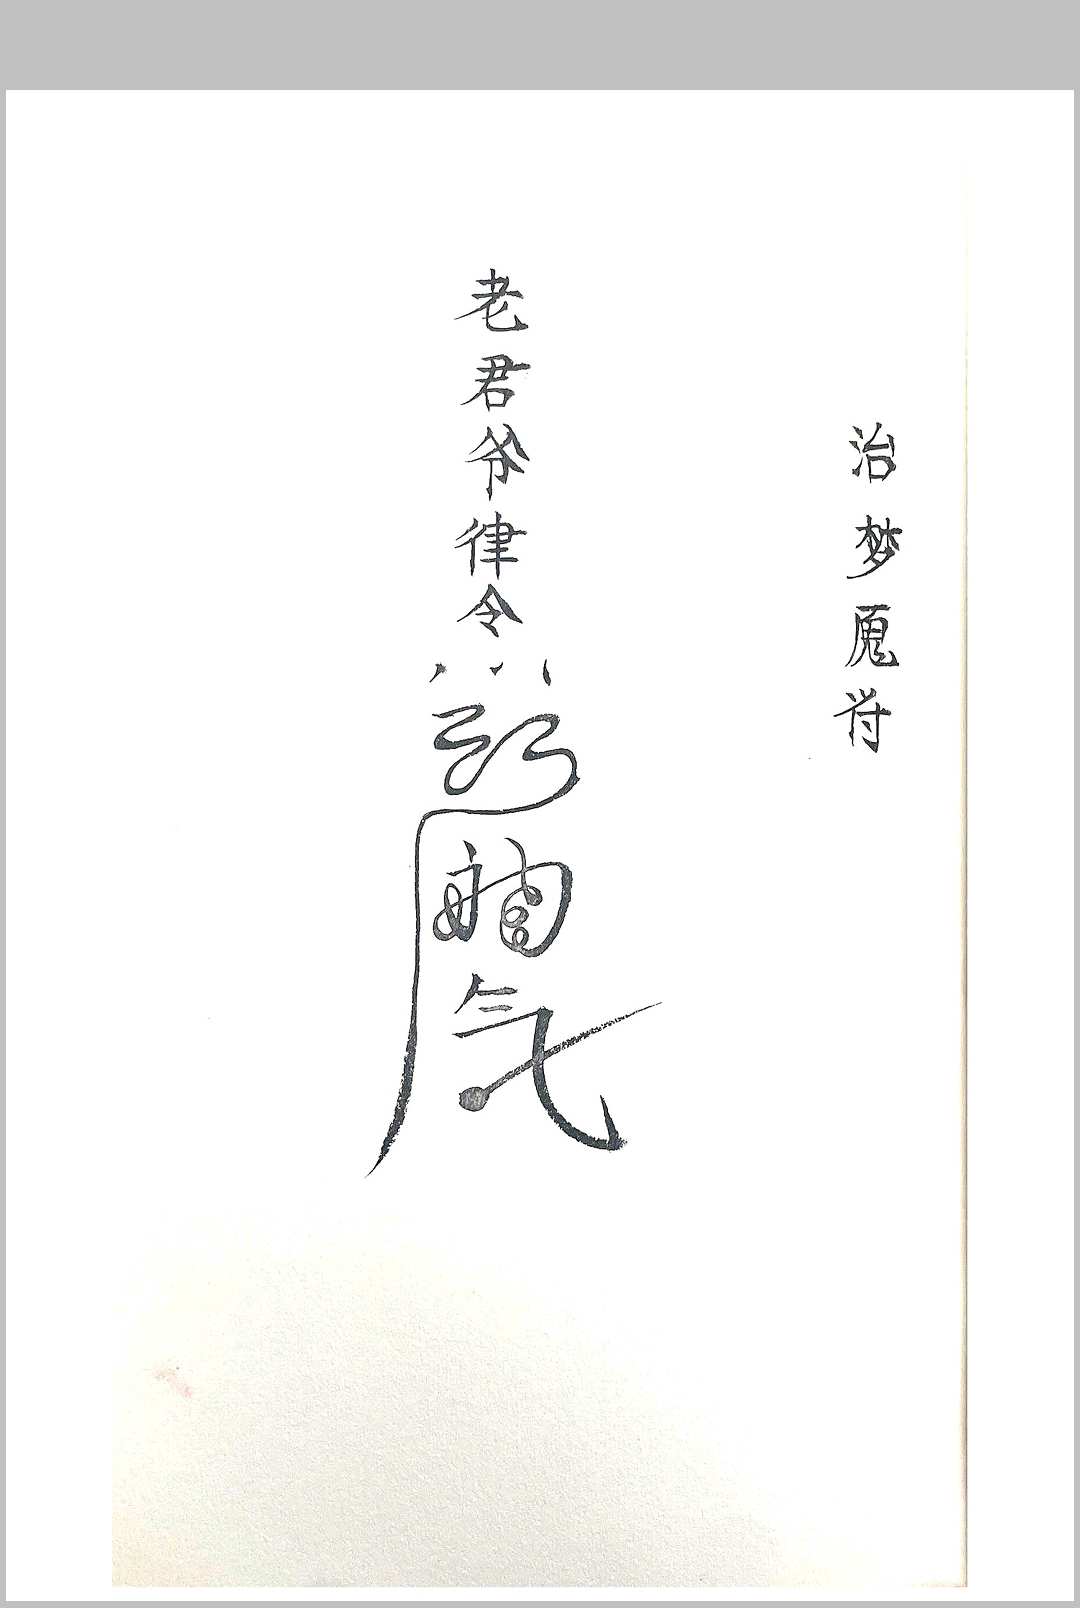 治梦魇符
老君爷律令
气